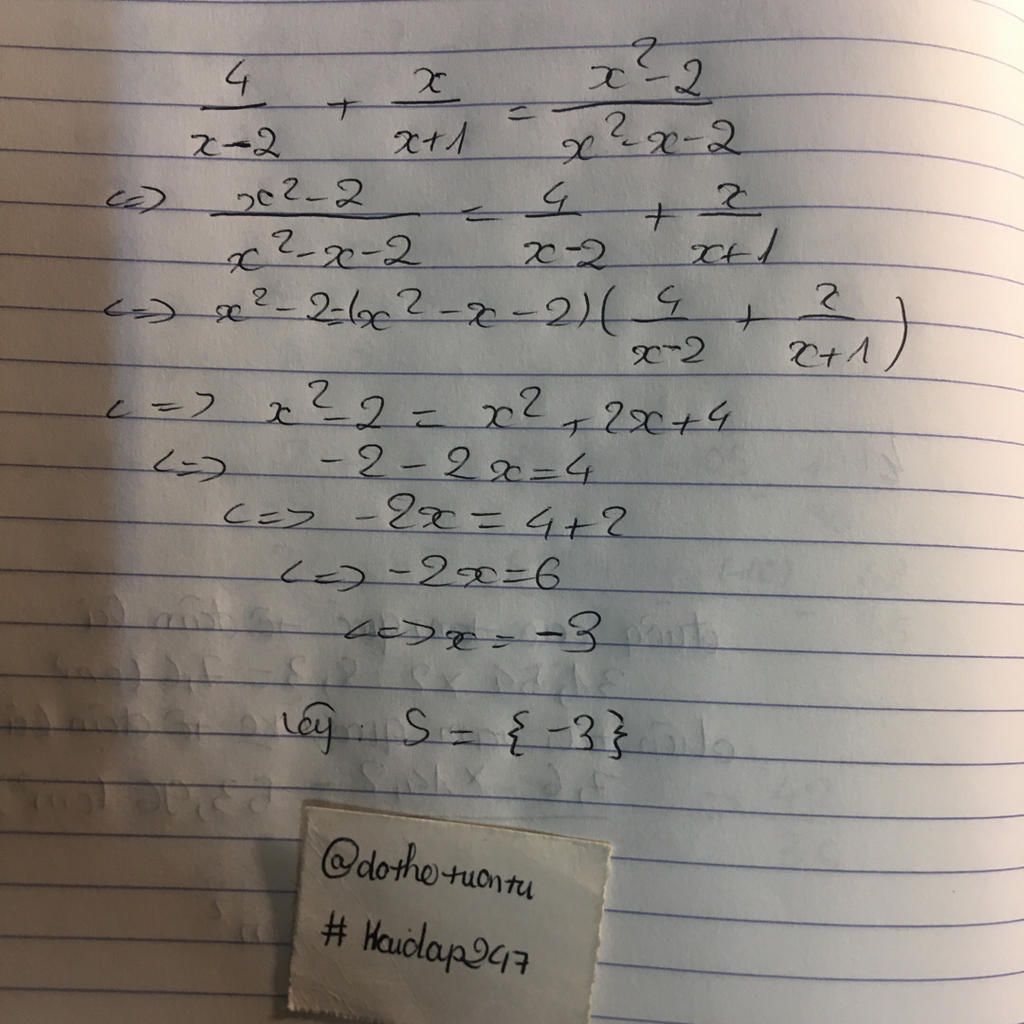 4/(x-2) + x/(x+1) = (x²-2)/(x²-x-2)
<=> (x²-2)/(x²-x-2) = 4/(x-2) + x/(x+1)
<=> x²-2=(x²-x-2)(4/(x-2) + x/(x+1))
<=> x²-2 = x²+2x+4
<=> -2-2x=4
<=> -2x = 4+2
<=> -2x=6
<=> x = -3
Vậy S = {-3}
@dothetuantu
# Hoidap247